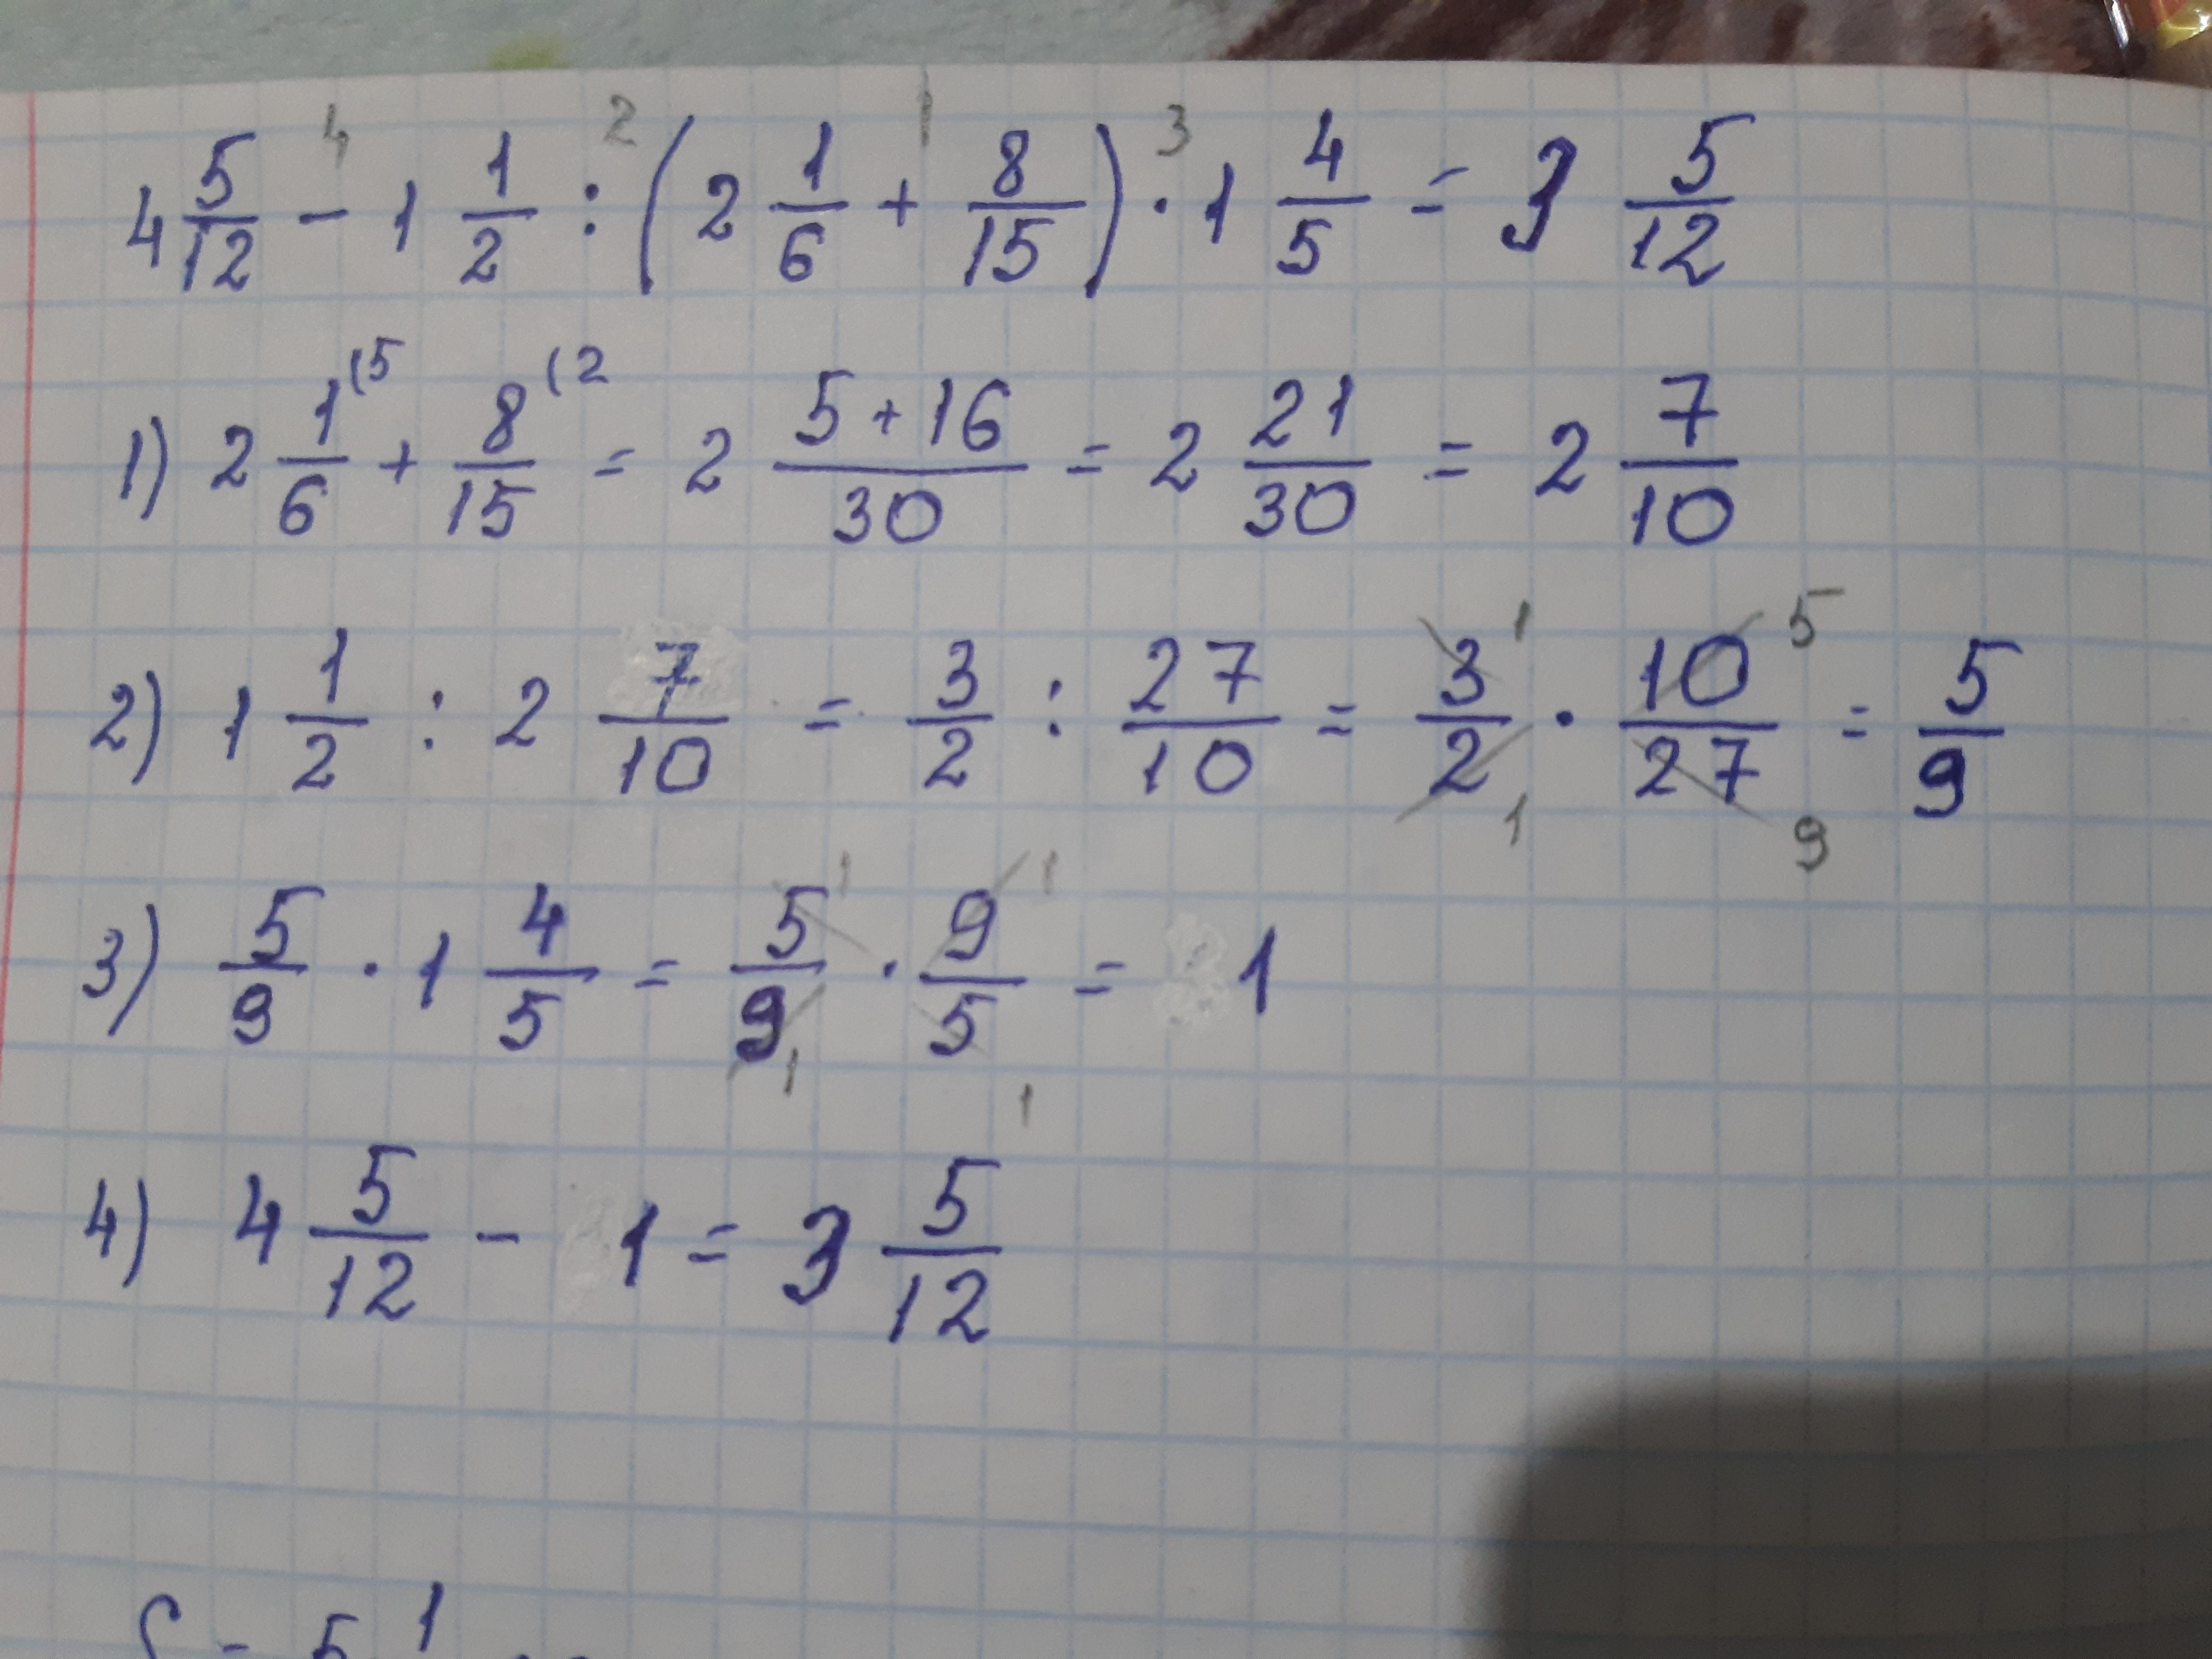 4 5/12 - 1 1/2 : (2 1/6 + 8/15) · 1 4/5 = 3 5/12
1) 2 1/6 + 8/15 = 2 5+16/30 = 2 21/30 = 2 7/10
2) 1 1/2 : 2 7/10 = 3/2 : 27/10 = 3/2 · 10/27 = 5/9
3) 5/9 · 1 4/5 = 5/9 · 9/5 = 1
4) 4 5/12 - 1 = 3 5/12